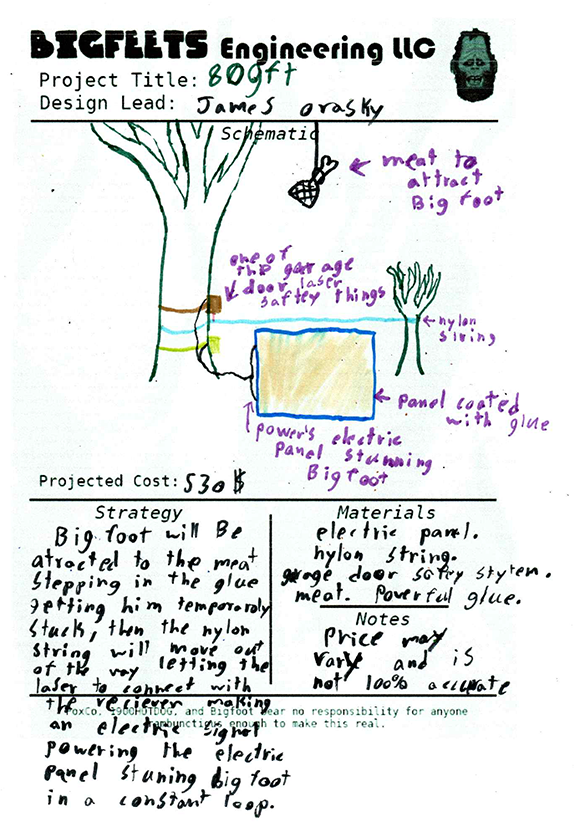 BIGFEETS Engineering LLC
Project Title: 809ft
Design Lead: James orasky
Schematic
meat to
attract
Big foot
one of
the garage
door laser
saftey things
nylon
string
panel coated
with glue
power's electric
Panel stunning
Big foot
Projected Cost: 530 $
Strategy
Big foot will Be
atracted to the meat
stepping in the glue
getting him temporaroly
stuck, then the nylon
string will move out
of the way letting the
laser to connect with
the reciever making
an electric signal
powering the electric
panel stuning big foot
in a constant loop.
Materials
electric panel.
nylon string.
garage door safey stytem.
meat. Powerful glue.
Notes
Price may
vary and is
not 100% accurate
FoxCo, 1900HOTDOG, and Bigfoot bear no responsibility for anyone
rambunctious enough to make this real.